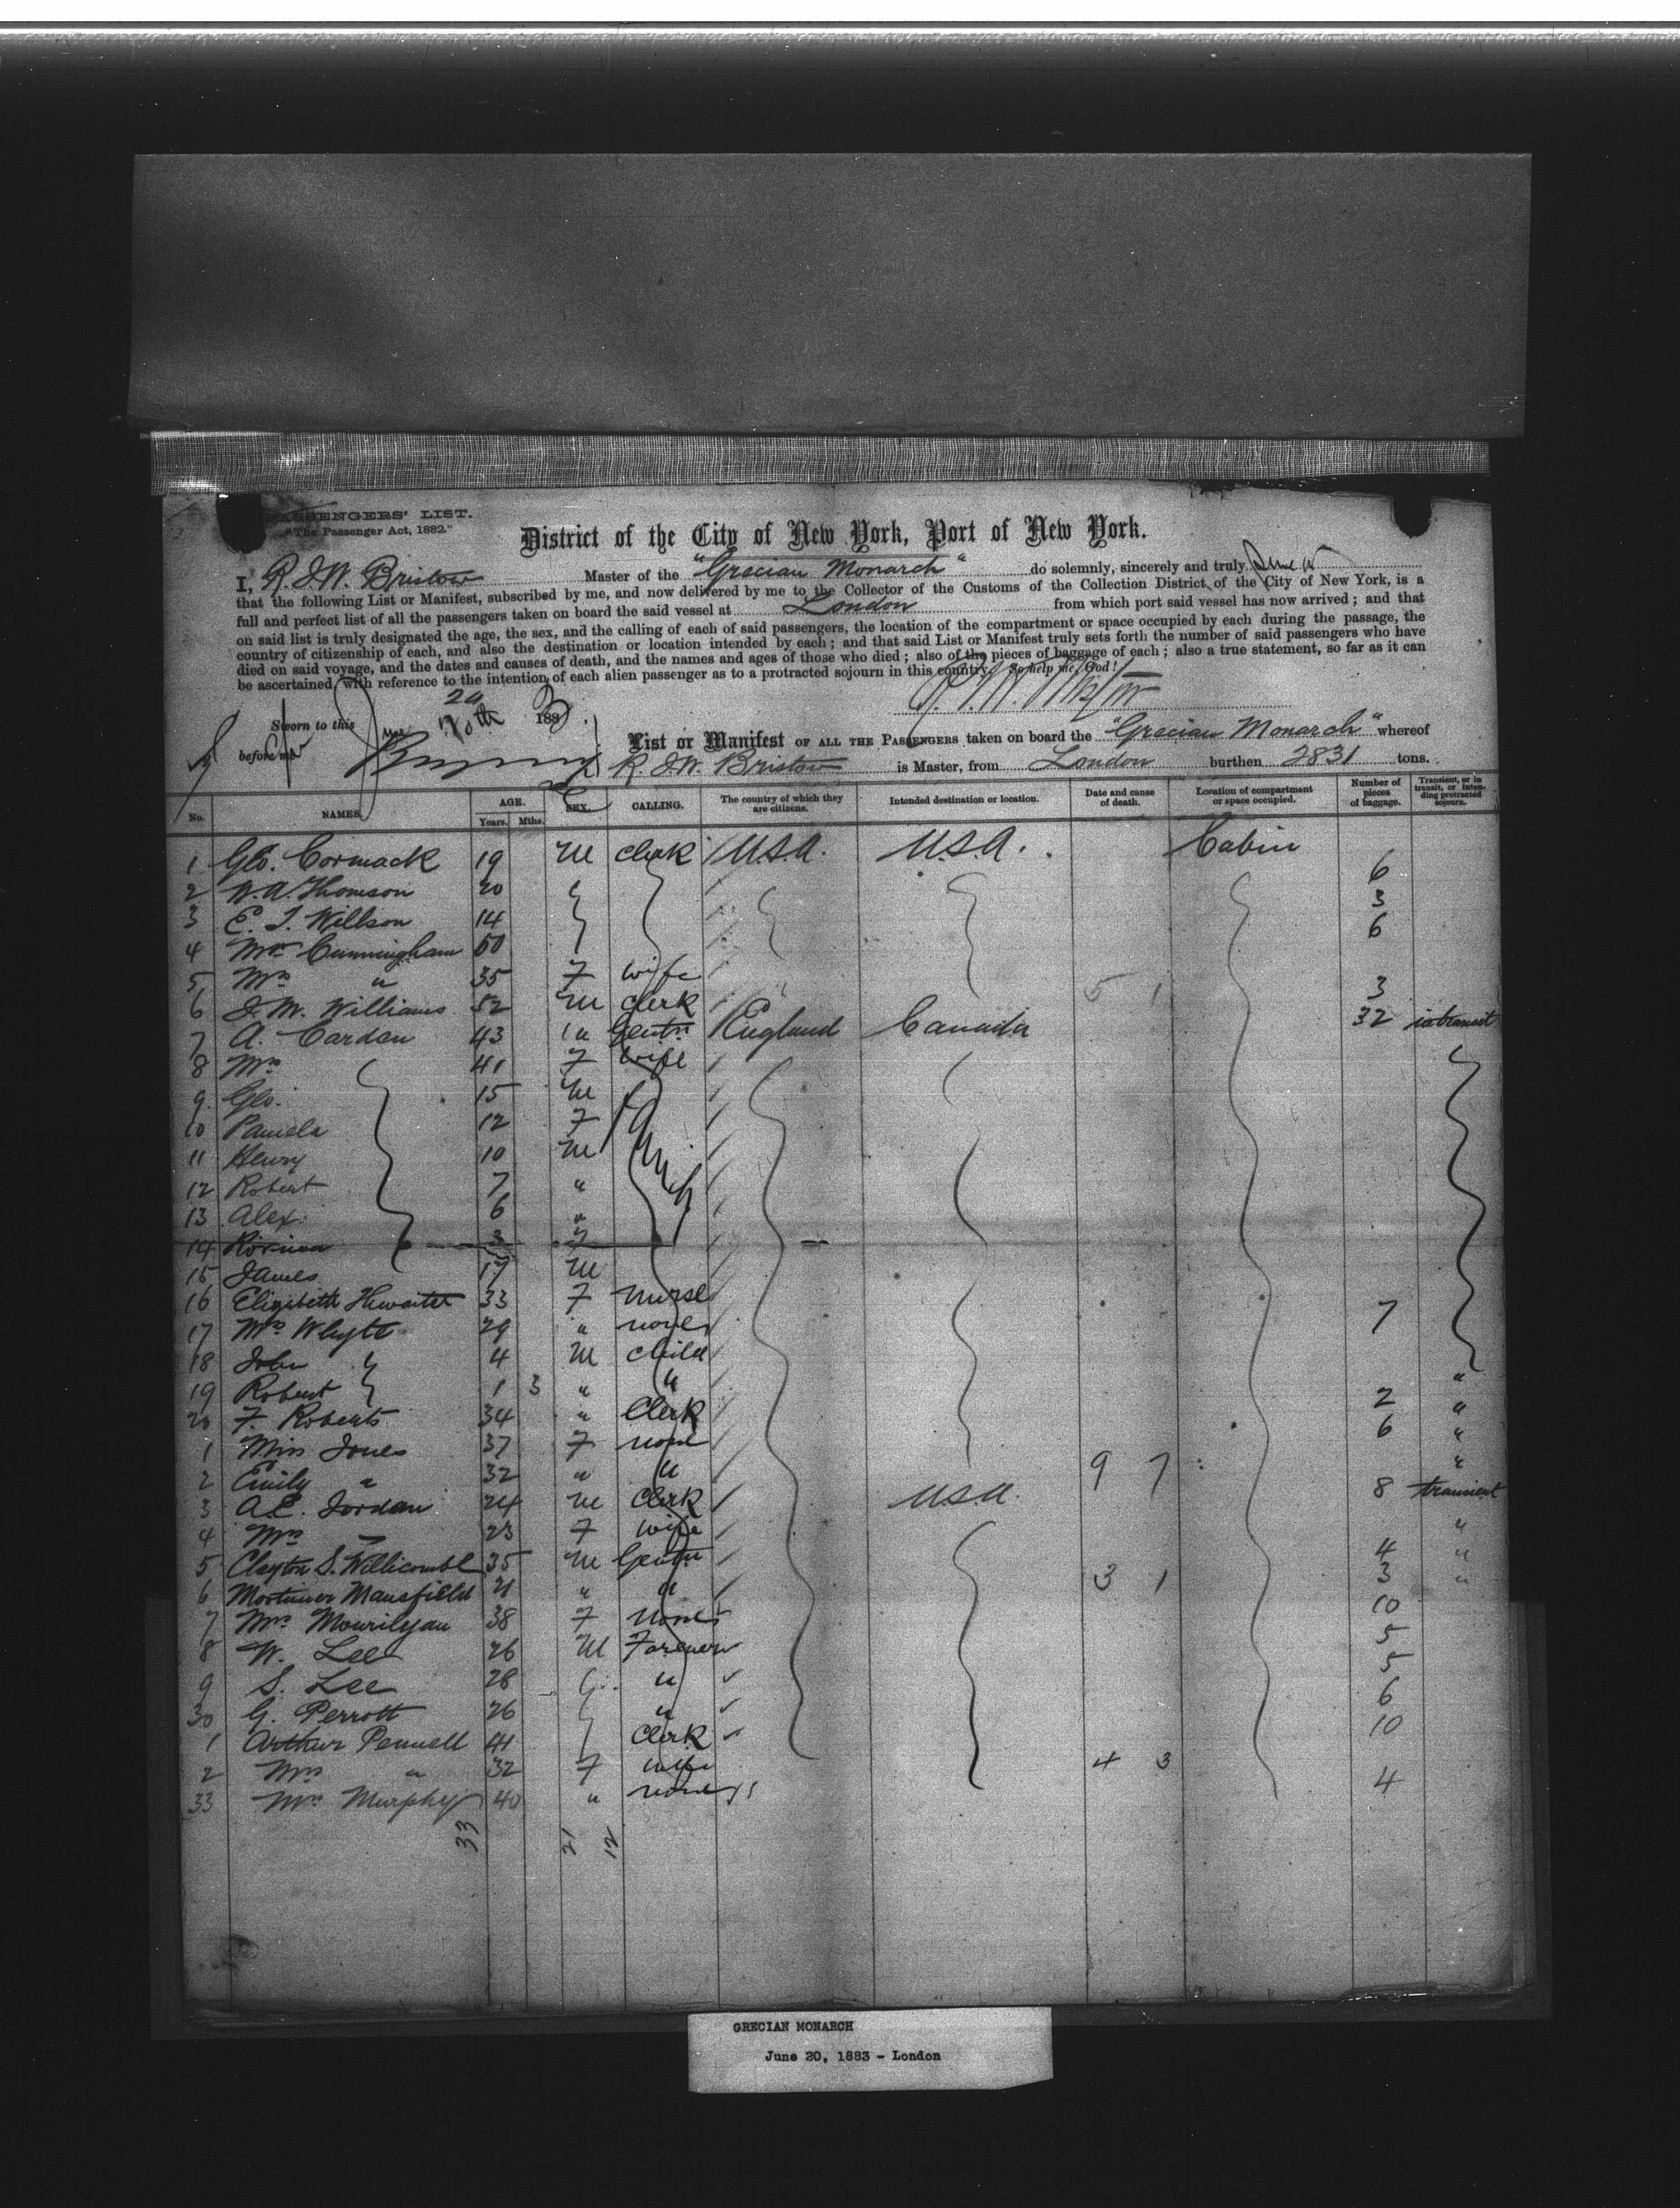 PASSENGERS' LIST.
"The Passenger Act, 1882."
District of the City of New York, Port of New York.
I, R. J. W. Bristow Master of the "Grecian Monarch" do solemnly, sincerely and truly
that the following List or Manifest, subscribed by me, and now delivered by me to the Collector of the Customs of the Collection District of the City of New York, is a
full and perfect list of all the passengers taken on board the said vessel at London from which port said vessel has now arrived; and that
on said list is truly designated the age, the sex, and the calling of each of said passengers, the location of the compartment or space occupied by each during the passage, the
country of citizenship of each, and also the destination or location intended by each; and that said List or Manifest truly sets forth the number of said passengers who have
died on said voyage, and the dates and causes of death, and the names and ages of those who died; also of the pieces of baggage of each; also a true statement, so far as it can
be ascertained, with reference to the intention of each alien passenger as to a protracted sojourn in this country. So help me God!
Sworn to this June 20th 1883.
before me
List or Manifest OF ALL THE PASSENGERS taken on board the "Grecian Monarch" whereof
R. J. W. Bristow is Master, from London burthen 2831 tons.
No. NAMES. AGE. Years. Mths. SEX. CALLING. The country of which they are citizens. Intended destination or location. Date and cause of death. Location of compartment or space occupied. Number of pieces of baggage. Transient, or in transit, or intending protracted sojourn.
1 Geo. Cormack 19 M Clerk U.S.A. U.S.A. Cabin 6
2 W. A. Thomson 20 3
3 E. J. Willson 14 6
4 Mr Cunningham 50
5 Mrs " 35 F wife 5 1 3
6 J. M. Williams 52 M Clerk
7 A. Carden 43 " Gentn England Canada 32 in transit
8 Mrs 41 F wife
9 Geo. 15 M Family
10 Pamela 12 F
11 Henry 10 M
12 Robert 7 "
13 Alex. 6 "
14 3 F
15 James 17 M
16 Elizabeth 33 F nurse
17 Mrs Whyte 29 " none 7
18 John 4 M child
19 Robert 1 3 " " "
20 F. Roberts 34 " Clerk 2 "
1 Miss Jones 37 F none 6 "
2 Emily " 32 " " 9 7 "
3 A. E. Jordan 24 M Clerk U.S.A. 8 transient
4 Mrs — 23 F wife "
5 Clayton S. Willicombe 35 M Gentn 4 "
6 Mortimer Mansfield 21 " " 3 1 3 "
7 Mrs Mourilyan 38 F none 10
8 W. Lee 26 M 5
9 S. Lee 28 " 5
30 G. Perrott 26 " 6
1 Arthur Pennell 41 Clerk 10
2 Mrs " 32 F wife 4 3
33 Mrs Murphy 40 " none 4
33 21 12
GRECIAN MONARCH
June 20, 1883 - London